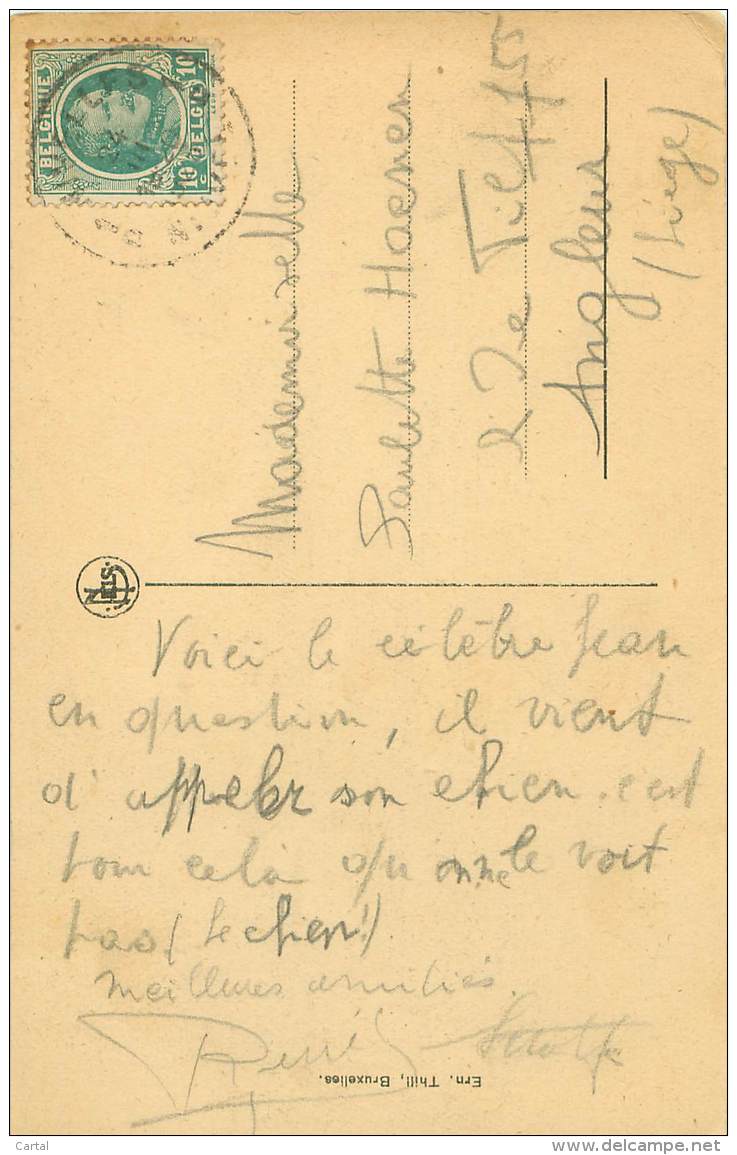 BELGIQUE 10
10 BELGIË
Mademoiselle
Paulette Haenen
R De Tilf 155
Angleur
(Liège)
NELS
Voici le célèbre Jean
en question, il vient
d'appeler son chien. c'est
pour cela qu'on ne le voit
pas (le chien!)
Meilleures amitiés.
René
Ern. Thill, Bruxelles.
Cartal
delcampe.net